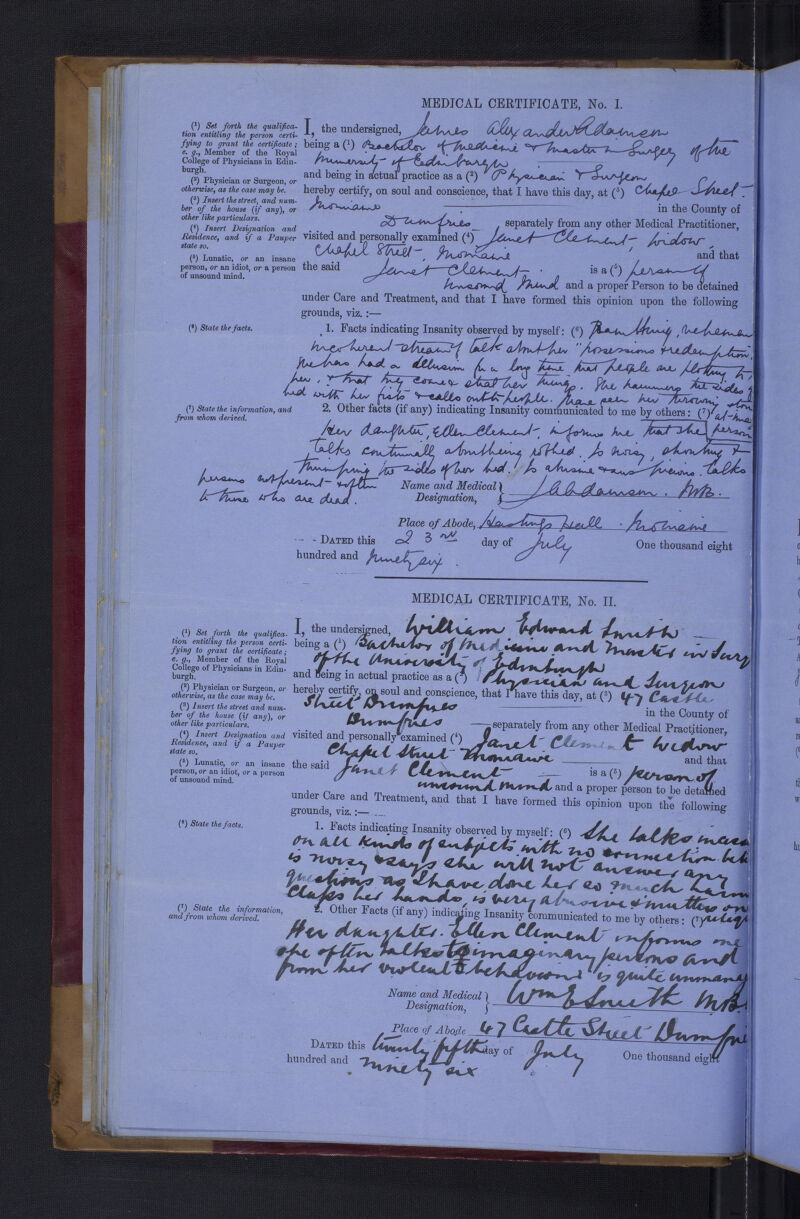 MEDICAL CERTIFICATE, No. I.
(¹) Set forth the qualifica-
tion entitling the person certi-
fying to grant the certificate;
e. g., Member of the Royal
College of Physicians in Edin-
burgh.
(²) Physician or Surgeon, or
otherwise, as the case may be.
(³) Insert the street, and num-
ber of the house (if any), or
other like particulars.
(⁴) Insert Designation and
Residence, and if a Pauper
state so.
(⁵) Lunatic, or an insane
person, or an idiot, or a person
of unsound mind.
I, the undersigned, James Alexander Adamson
being a (¹) Bachelor of Medicine & Master in Surgery of the
University of Edinburgh
and being in actual practice as a (²) Physician & Surgeon
hereby certify, on soul and conscience, that I have this day, at (³) Chapel Street
Moniaive in the County of
Dumfries separately from any other Medical Practitioner,
visited and personally examined (⁴) Janet Clement, widow,
Chapel Street, Moniaive and that
the said Janet Clement is a (⁵) person of
unsound mind and a proper Person to be detained
under Care and Treatment, and that I have formed this opinion upon the following
grounds, viz.:—
(⁶) State the facts.
1. Facts indicating Insanity observed by myself: (⁶) vehement
incoherent stream of talk about her "possessions & redemption.
She has had a delusion for a long time that people are plotting to
her, & that they come & steal her things. She hammers the sides of
bed with her fists & calls out to people. Have seen her throwing
(⁷) State the information, and
from whom derived.
2. Other facts (if any) indicating Insanity communicated to me by others: (⁷)
Her daughter, Ellen Clement, informs me that she
talks continually about being robbed. Is noisy, shouting &
thumping the sides of her bed. Is abusive & talks
persons not present & often
to those who are dead.
Name and Medical
Designation, J A Adamson. M.B.
Place of Abode, Hastings Hall. Moniaive
DATED this 23rd day of July One thousand eight
hundred and ninety six.
MEDICAL CERTIFICATE, No. II.
(¹) Set forth the qualifica-
tion entitling the person certi-
fying to grant the certificate;
e. g., Member of the Royal
College of Physicians in Edin-
burgh.
(²) Physician or Surgeon, or
otherwise, as the case may be.
(³) Insert the street and num-
ber of the house (if any), or
other like particulars.
(⁴) Insert Designation and
Residence, and if a Pauper
state so.
(⁵) Lunatic, or an insane
person, or an idiot, or a person
of unsound mind.
I, the undersigned, William Edward Smith
being a (¹) Bachelor of Medicine and Master in Surg
of the University of Edinburgh
and being in actual practice as a (²) Physician and Surgeon
hereby certify, on soul and conscience, that I have this day, at (³) 47 Castle
Street Dumfries in the County of
Dumfries separately from any other Medical Practitioner,
visited and personally examined (⁴) Janet Clement widow
Chapel Street Moniaive and that
the said Janet Clement is a (⁵) person of
unsound mind and a proper person to be detained
under Care and Treatment, and that I have formed this opinion upon the following
grounds, viz.:—
(⁶) State the facts.
1. Facts indicating Insanity observed by myself: (⁶) She talks
on all kinds of subjects with no connection
is noisy & says she will not answer any
questions as I have done her so much harm
Claps her hands, is very abusive & mutters on
(⁷) State the information,
and from whom derived.
2. Other Facts (if any) indicating Insanity communicated to me by others: (⁷)
Her daughter. Ellen Clement informs me
she often talks to imaginary persons and
from her violent behaviour is quite
Name and Medical
Designation, Wm E Smith M.B.
Place of Abode 47 Castle Street
DATED this twenty fifth day of July One thousand eight
hundred and ninety six